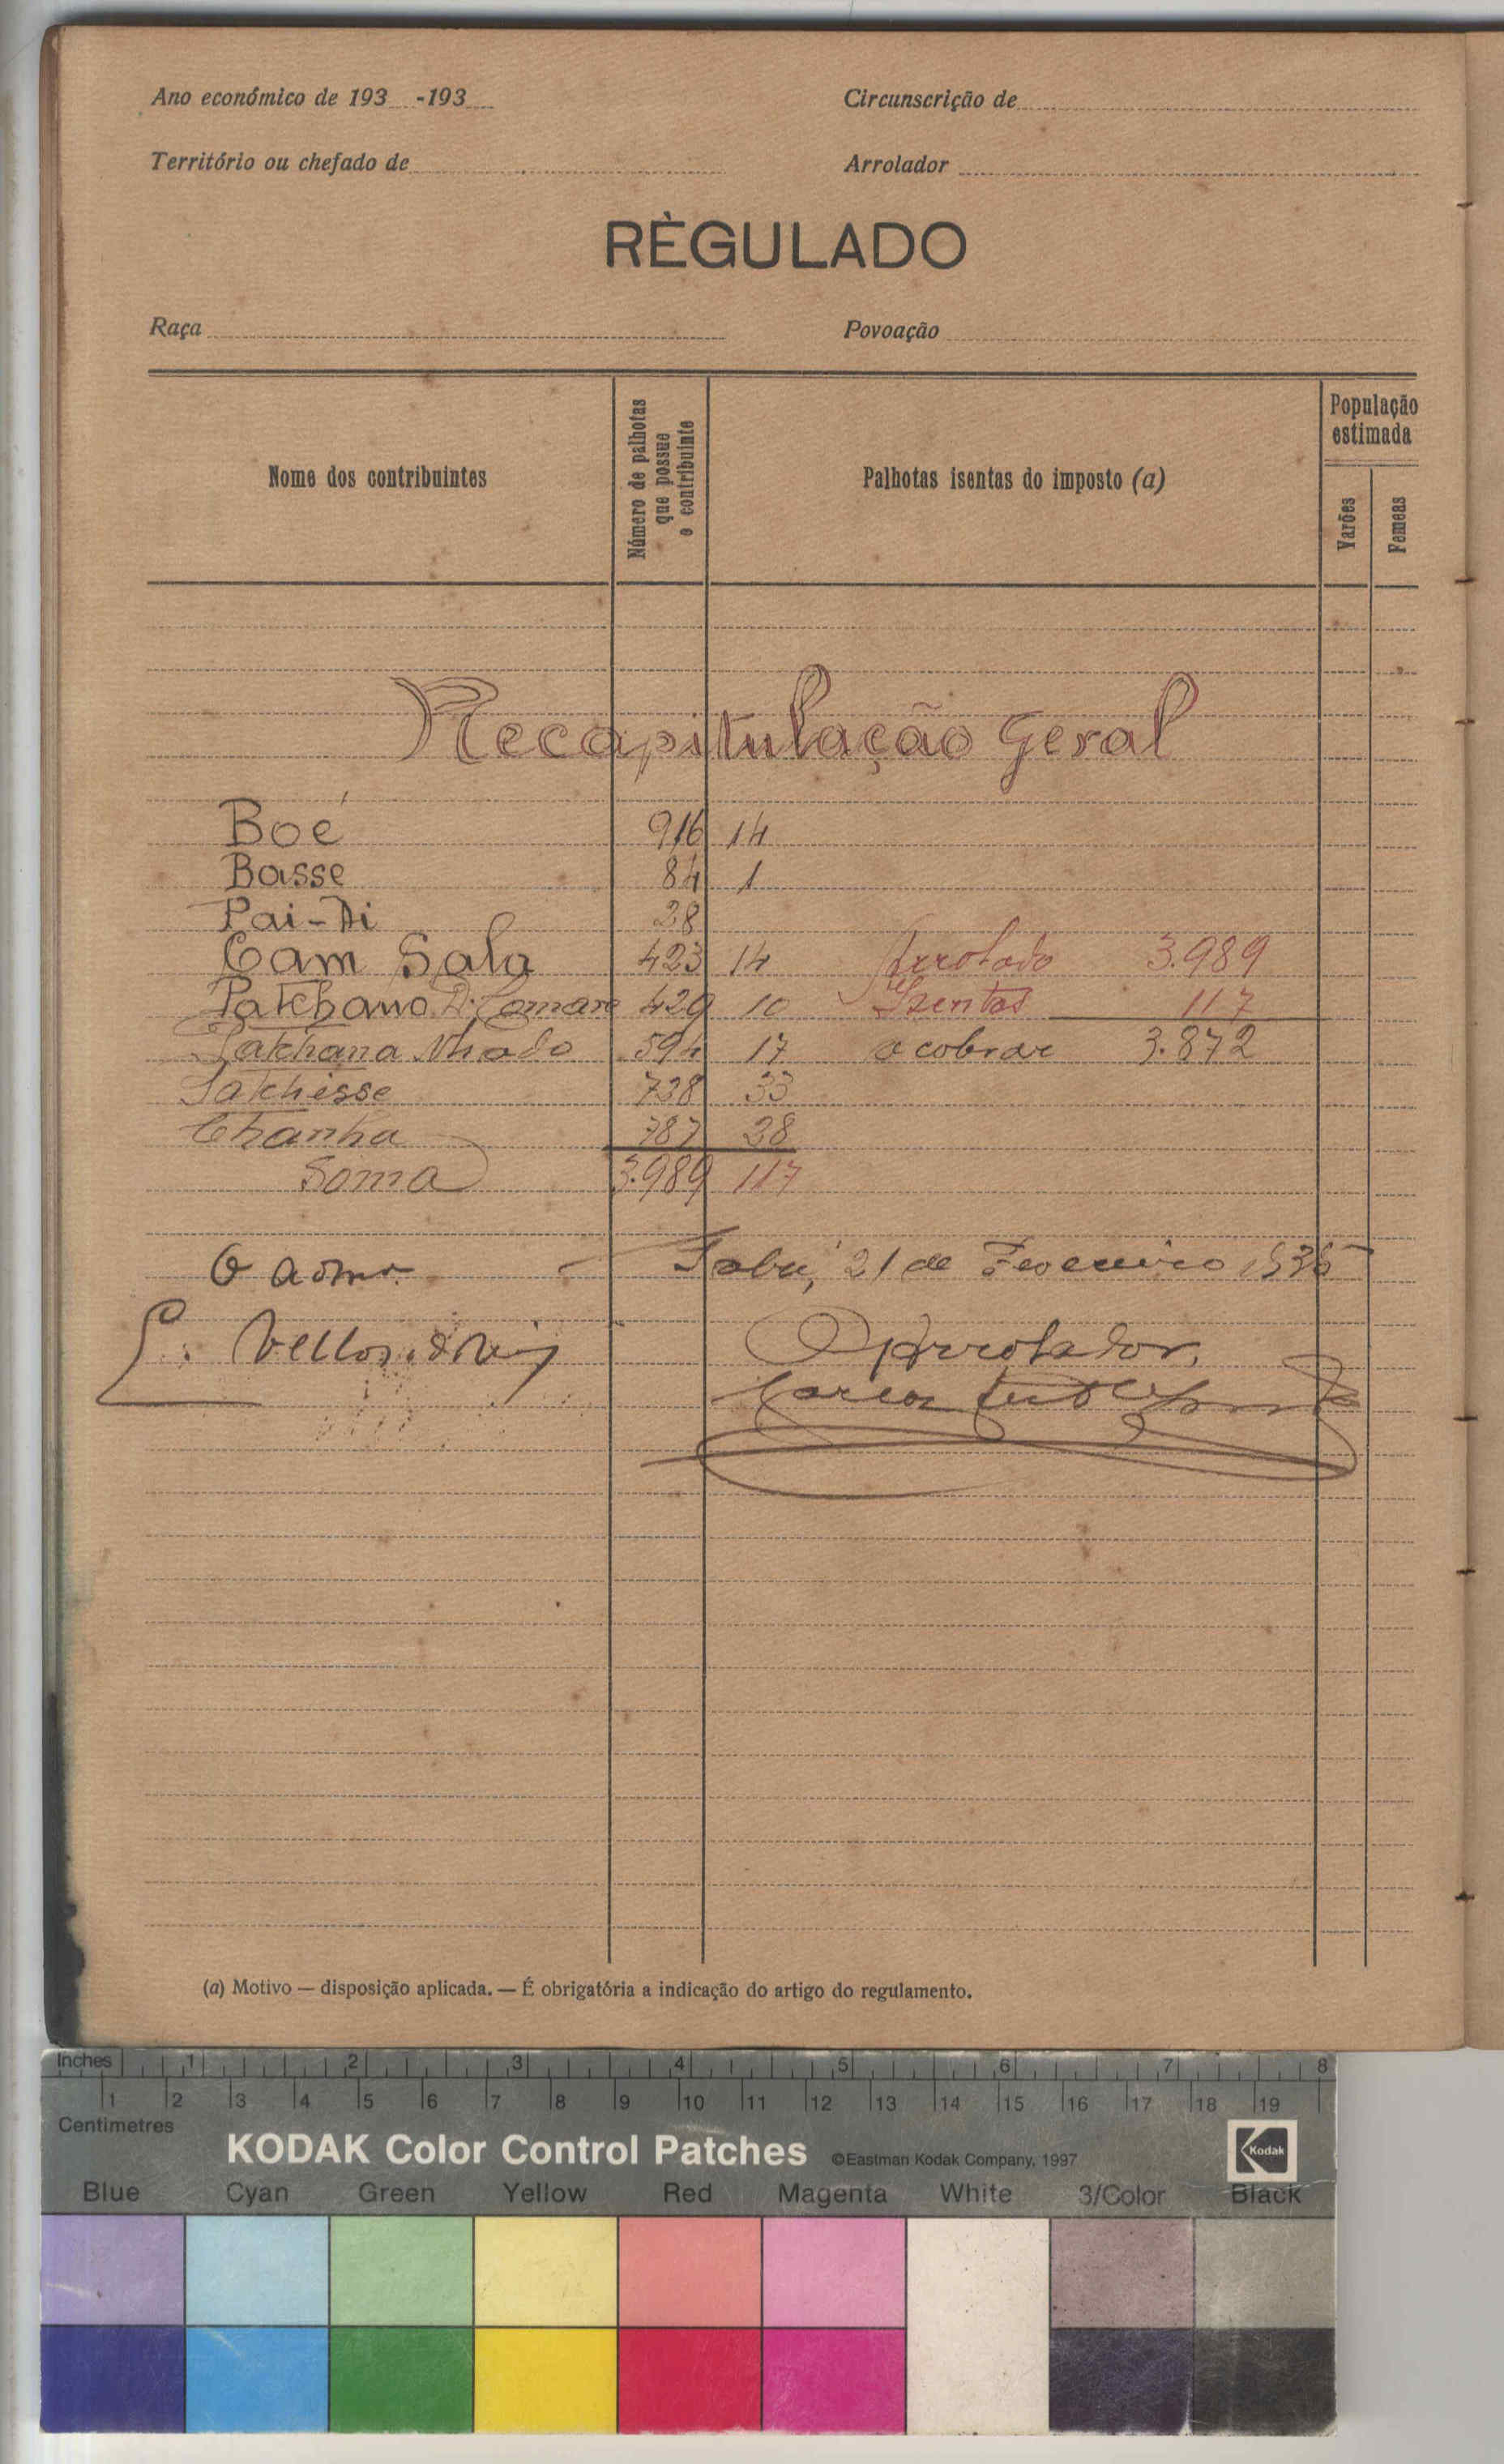 Ano económico de 193 -193
Circunscrição de
Território ou chefado de
Arrolador
RÈGULADO
Raça
Povoação
Nome dos contribuintes
Número de palhotas que possue o contribuinte
Palhotas isentas do imposto (a)
População estimada
Varões
Femeas
Recapitulação Geral
Boé 916 14
Basse 84 1
Pai-Ai 28
Cam Sala 423 14 Arrolado 3.989
Patchana D. Comare 429 10 Isentos 117
Patchana Nhado 594 17 a cobrar 3.872
Satchesse 728 33
Chanha 787 28
Soma 3.989 117
O admor.
Gabú, 21 de Fevereiro
O Arrolador,
(a) Motivo — disposição aplicada. — É obrigatória a indicação do artigo do regulamento.
Inches 1 2 3 4 5 6 7 8
1 2 3 4 5 6 7 8 9 10 11 12 13 14 15 16 17 18 19
Centimetres
KODAK Color Control Patches ©Eastman Kodak Company, 1997 Kodak
Blue Cyan Green Yellow Red Magenta White 3/Color Black